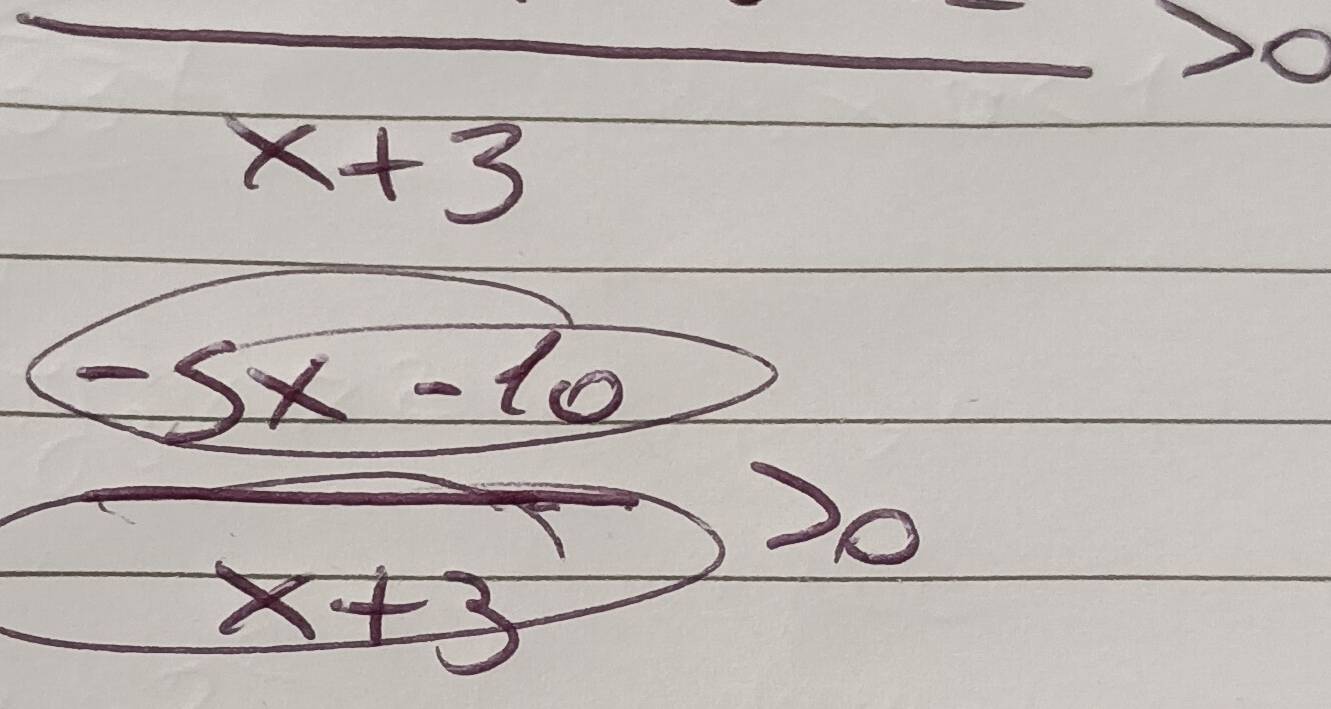 >0
x+3
-5x-10
>0
x+3